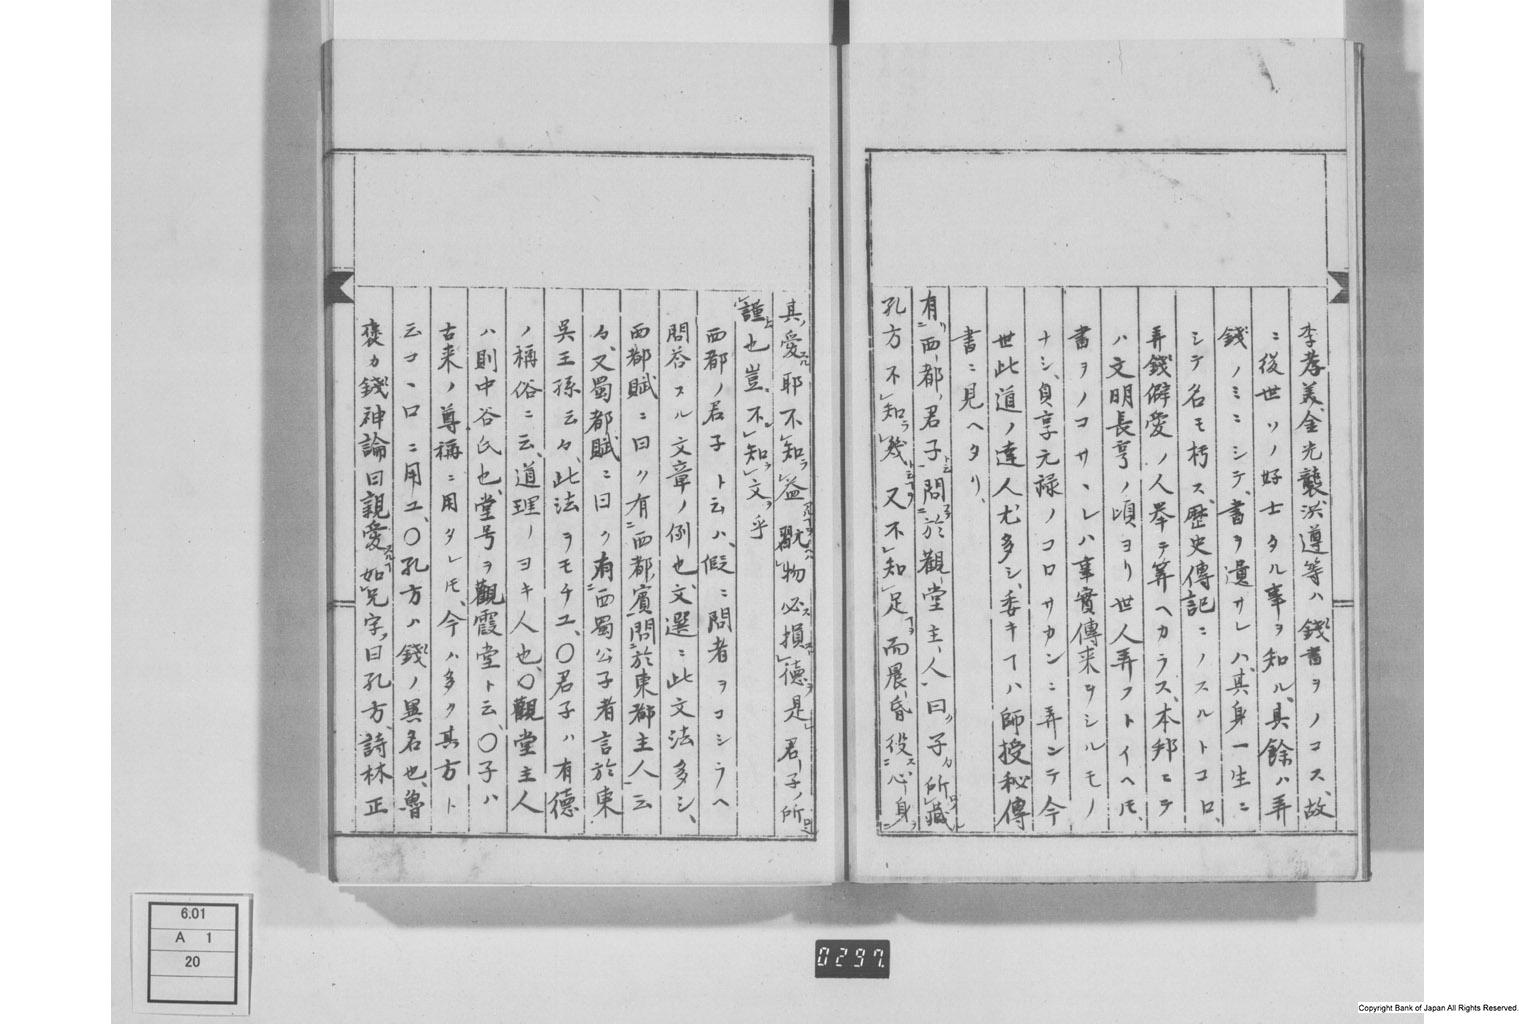 李孝美、金光襲、洪遵等ハ錢書ヲノコス、故
ニ後世ソノ好士タル事ヲ知ル、其餘ハ弄
錢ノミニシテ、書ヲ遺サレハ、其身一生ニ
シテ名モ朽ス、歴史傳記ニノスルトコロ、
弄錢僻愛ノ人挙テ算ヘカラス、本邦ニテ
ハ文明長亨ノ頃ヨリ世人弄フトイヘモ、
書ヲノコサヽレハ事實傳来ヲシルモノ
ナシ、貞享元祿ノコロサカンニ弄ンテ今
世此道ノ達人尤多シ、委キヿハ師授秘傳
書ニ見ヘタリ、
有西都君子問於觀堂主人曰子所藏
孔方不知幾又不知足而晨昏役心身
其愛耶不知益翫物必損德是君子所
謹也豈不知文乎
西都ノ君子ト云ハ、假ニ問者ヲコシラヘ
問答スル文章ノ例也、文選ニ此文法多シ、
西都賦ニ曰ク有西都賓問於東都主人云
々、又蜀都賦ニ曰ク有西蜀公子者言於東
吳王孫云々、此法ヲモチユ、〇君子ハ有德
ノ稱俗ニ云、道理ノヨキ人也、〇觀堂主人
ハ則中谷氏也、堂号ヲ觀霞堂ト云、〇子ハ
古来ノ尊稱ニ用タレモ、今ハ多ク其方ト
云コヽロニ用ユ、〇孔方ハ錢ノ異名也、魯
褒カ錢神論曰親愛如兄字曰孔方、詩林正
6.01
A 1
20
0297
Copyright Bank of Japan All Rights Reserved.